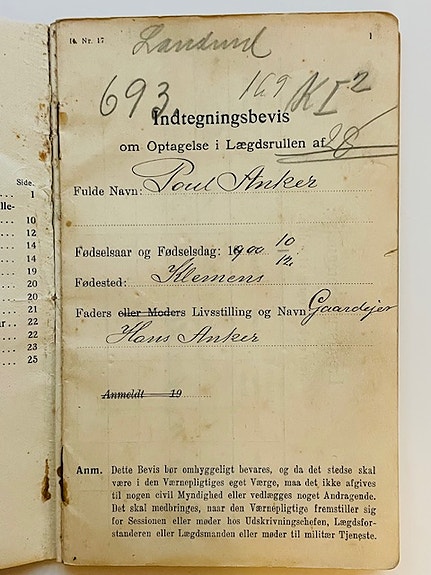 16. Nr. 17
1
693.
169 KI2
Indtegningsbevis
om Optagelse i Lægdsrullen af 28
Fulde Navn: Poul Anker
Fødselsaar og Fødselsdag: 1900 10/12.
Fødested: Klemens
Faders eller Moders Livsstilling og Navn Gaardejer
Hans Anker
Anmeldt 19
Anm. Dette Bevis bør omhyggeligt bevares, og da det stedse skal
være i den Værnepligtiges eget Værge, maa det ikke afgives
til nogen civil Myndighed eller vedlægges noget Andragende.
Det skal medbringes, naar den Værnepligtige fremstiller sig
for Sessionen eller møder hos Udskrivningschefen, Lægdsfor-
standeren eller Lægdsmanden eller møder til militær Tjeneste.
Side.
1
10
12
14
14
19
20
20
21
22
22
23
25